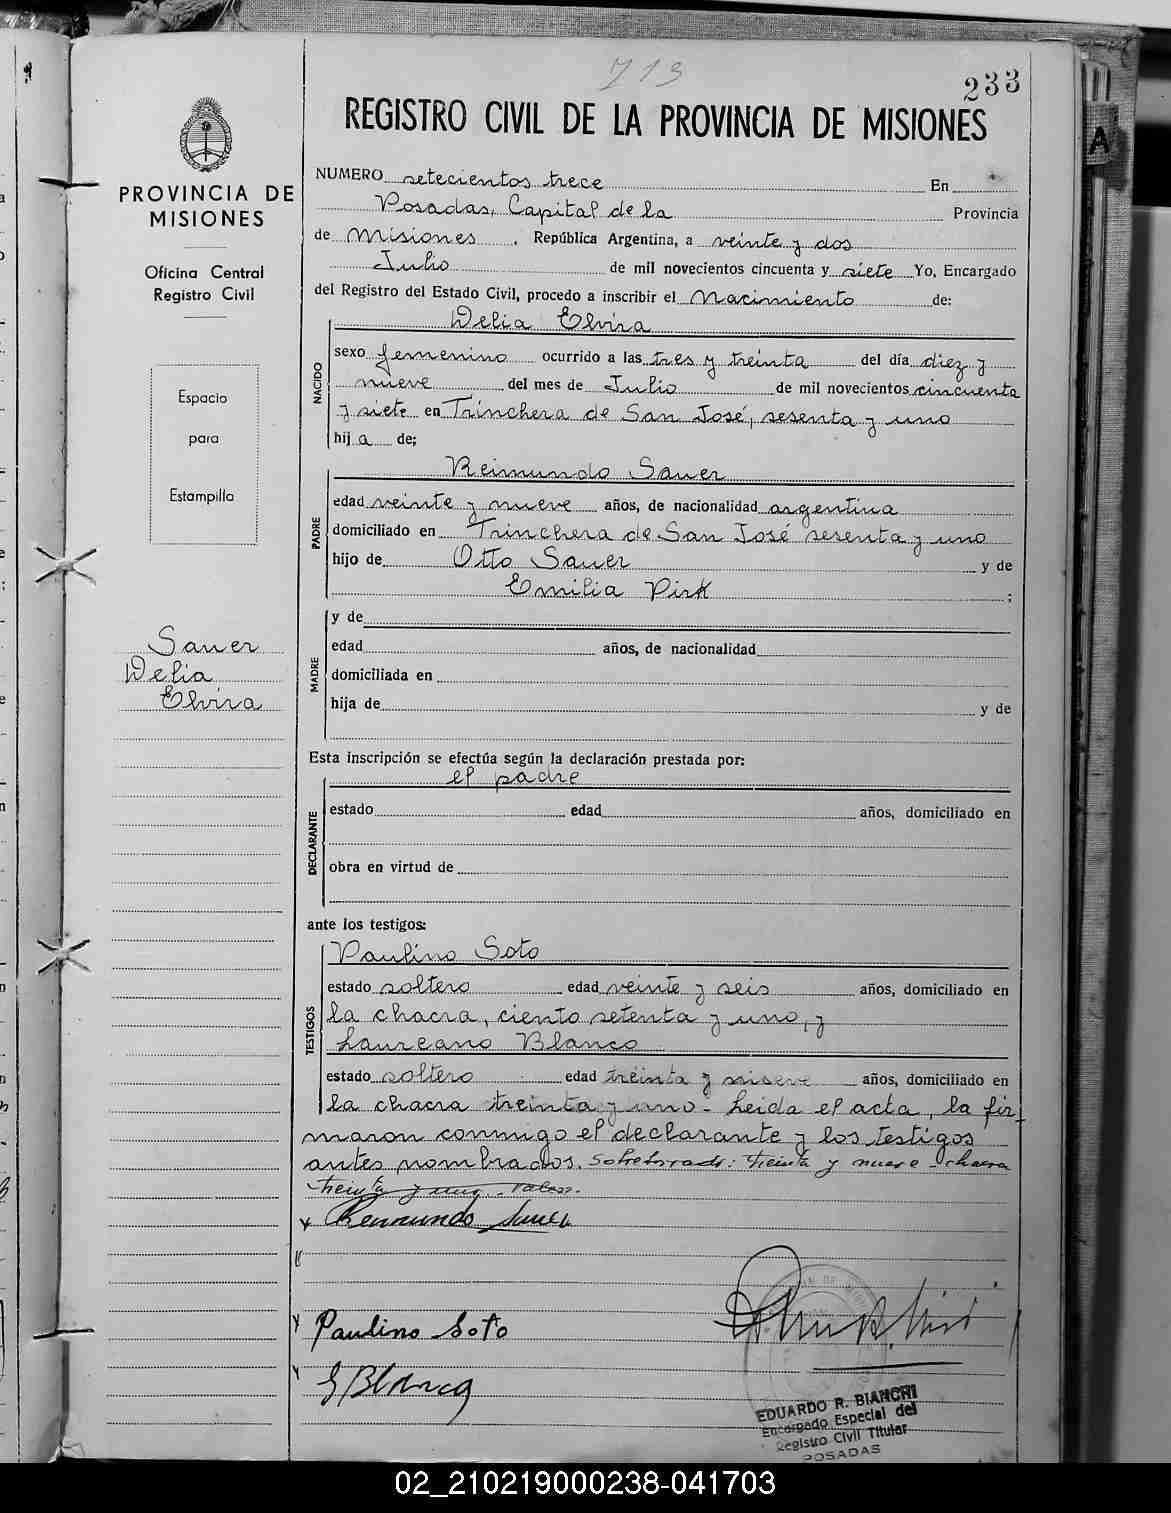 713
233
REGISTRO CIVIL DE LA PROVINCIA DE MISIONES
PROVINCIA DE
MISIONES
Oficina Central
Registro Civil
Espacio
para
Estampilla
Sauer
Delia
Elvira
NUMERO setecientos trece En
Posadas, Capital de la Provincia
de Misiones, República Argentina, a veinte y dos
Julio de mil novecientos cincuenta y siete Yo, Encargado
del Registro del Estado Civil, procedo a inscribir el Nacimiento de:
NACIDO
Delia Elvira
sexo femenino ocurrido a las tres y treinta del día diez y
nueve del mes de Julio de mil novecientos cincuenta
y siete en Trinchera de San José, sesenta y uno
hija de;
PADRE
Reimundo Sauer
edad veinte y nueve años, de nacionalidad argentina
domiciliado en Trinchera de San José sesenta y uno
hijo de Otto Sauer y de
Emilia Pirk ;
MADRE
y de
edad años, de nacionalidad
domiciliada en
hija de y de
Esta inscripción se efectúa según la declaración prestada por:
el padre
DECLARANTE
estado edad años, domiciliado en
obra en virtud de
ante los testigos:
TESTIGOS
Paulino Soto
estado soltero edad veinte y seis años, domiciliado en
la chacra, ciento setenta y uno, y
Laureano Blanco
estado soltero edad treinta y nueve años, domiciliado en
la chacra treinta y uno - Leida el acta, la fir
maron conmigo el declarante y los testigos
antes nombrados. Sobreborrado: treinta y nueve - chacra
treinta y uno - Valen.
Reimundo Sauer
Paulino Soto
Blanco
EDUARDO R. BIANCHI
Encargado Especial del
Registro Civil Titular
POSADAS
02_210219000238-041703